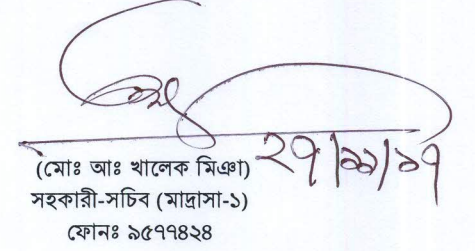 ২৭/১১/১৭
(মোঃ আঃ খালেক মিঞা)
সহকারী-সচিব (মাদ্রাসা-১)
ফোনঃ ৯৫৭৭৪২৪